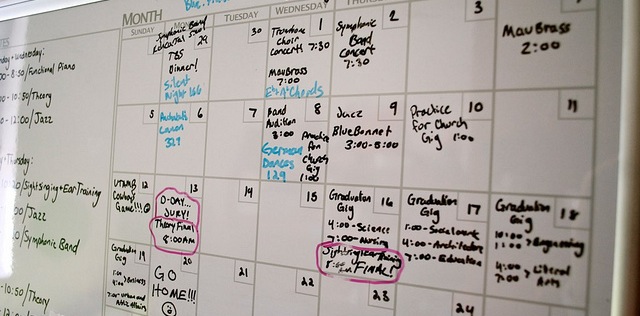 MONTH
SUNDAY
TUESDAY
WEDNESDAY
- 8:50/Functional Piano
- 10:50/Theory
- 12:00/Jazz
Thursday:
/Sightsinging+Ear Training
/Jazz
/Symphonic Band
-10:50/Theory
Symphonic Band
29
TBS
Dinner!
Silent
Night 166
30
1
Trombone
Choir
Concert 7:30
MavBrass
7:00
2
Symphonic
Band
Concert
7:30
3
MavBrass
2:00
5
6
Canon
329
7
8
Band
Audition
3:00
Practice
For
Church
Gig
1:00
German
Dances
129
9
Jazz
BlueBonnet
3:00-5:00
10
Practice
for Church
Gig 1:00
11
12
Cowboys
Game!!!
13
D-DAY...
JURY!
Theory Final
8:00AM
14
15
16
Graduation
Gig
4:00-Science
7:00-Nursing
Sightsing/Ear Training
FINAL!
17
Graduation
Gig
1:00-Social work
4:00-Architecture
7:00-Education
18
Graduation
Gig
10:00
11:00 Engineering
4:00
7:00 Liberal
Arts
Graduation 19
Gig
1:00
Business
4:00
7:00-Urban and
20
GO
HOME!!!
21
22
23
24